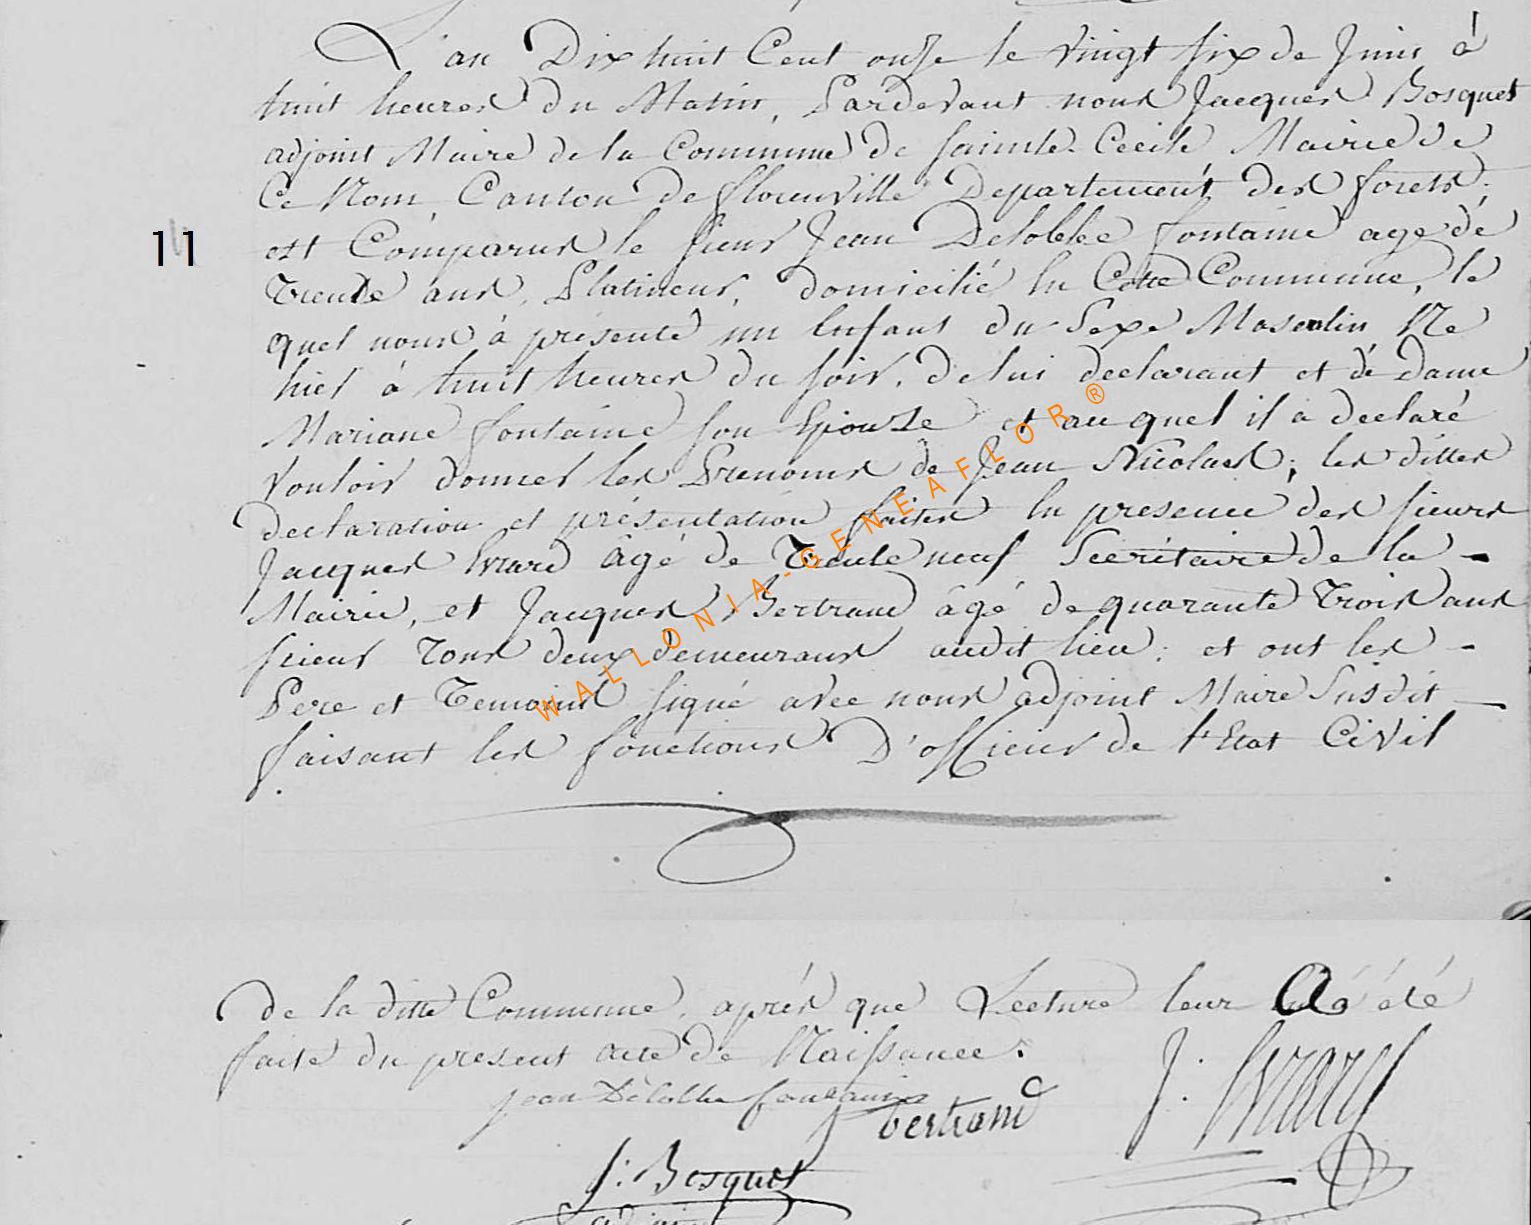 L'an Dix huit Cent onze le vingt six de Juin à
huit heures du Matin, Pardevant nous Jacques Bosquet
adjoint Maire de la Commune de Sainte Cecile Mairie de
Ce Nom, Canton de florenville Departement des forets;
est Comparus le sieur Jean Delobbe fontaine age de
Trente ans, Platineur, domicilié En Cette Commune, le
11
quel nous à présenté un Enfant du Sexe Masculin Né
hier à huit heures du soir, de lui declarant et de Dame
Mariane fontaine son Epouse et auquel il a declaré
vouloir donner les Prenoms de Jean Nicolas; les dittes
declaration et présentation faites En presence des sieurs
Jacques Evrard âgé de Trente neuf Secrétaire de la -
Mairie, et Jacques Bertrand âgé de quarante Trois ans
scieur Tous deux demeurans audit lieu; et ont les -
Pere et Temoins signé avec nous adjoint Maire Susdit -
faisant les fonctions D'officier de l'Etat Civil
WALLONIA-GENEAFLOR®
de la ditte Commune, aprés que Lecture leur a été
faite du present acte de Naissance.
jean Delobbe fontaine
J bertrand
J: Evrard
J: Bosquet
adjoint